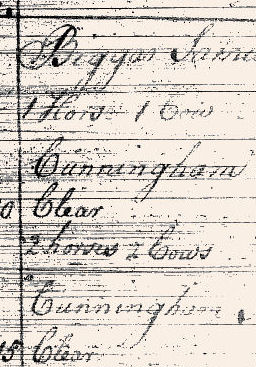 Biggar Samu
1 Horse 1 Cow
Cunningham
0 Clear
2 horses 2 Cows
Cunningham
15 Clear